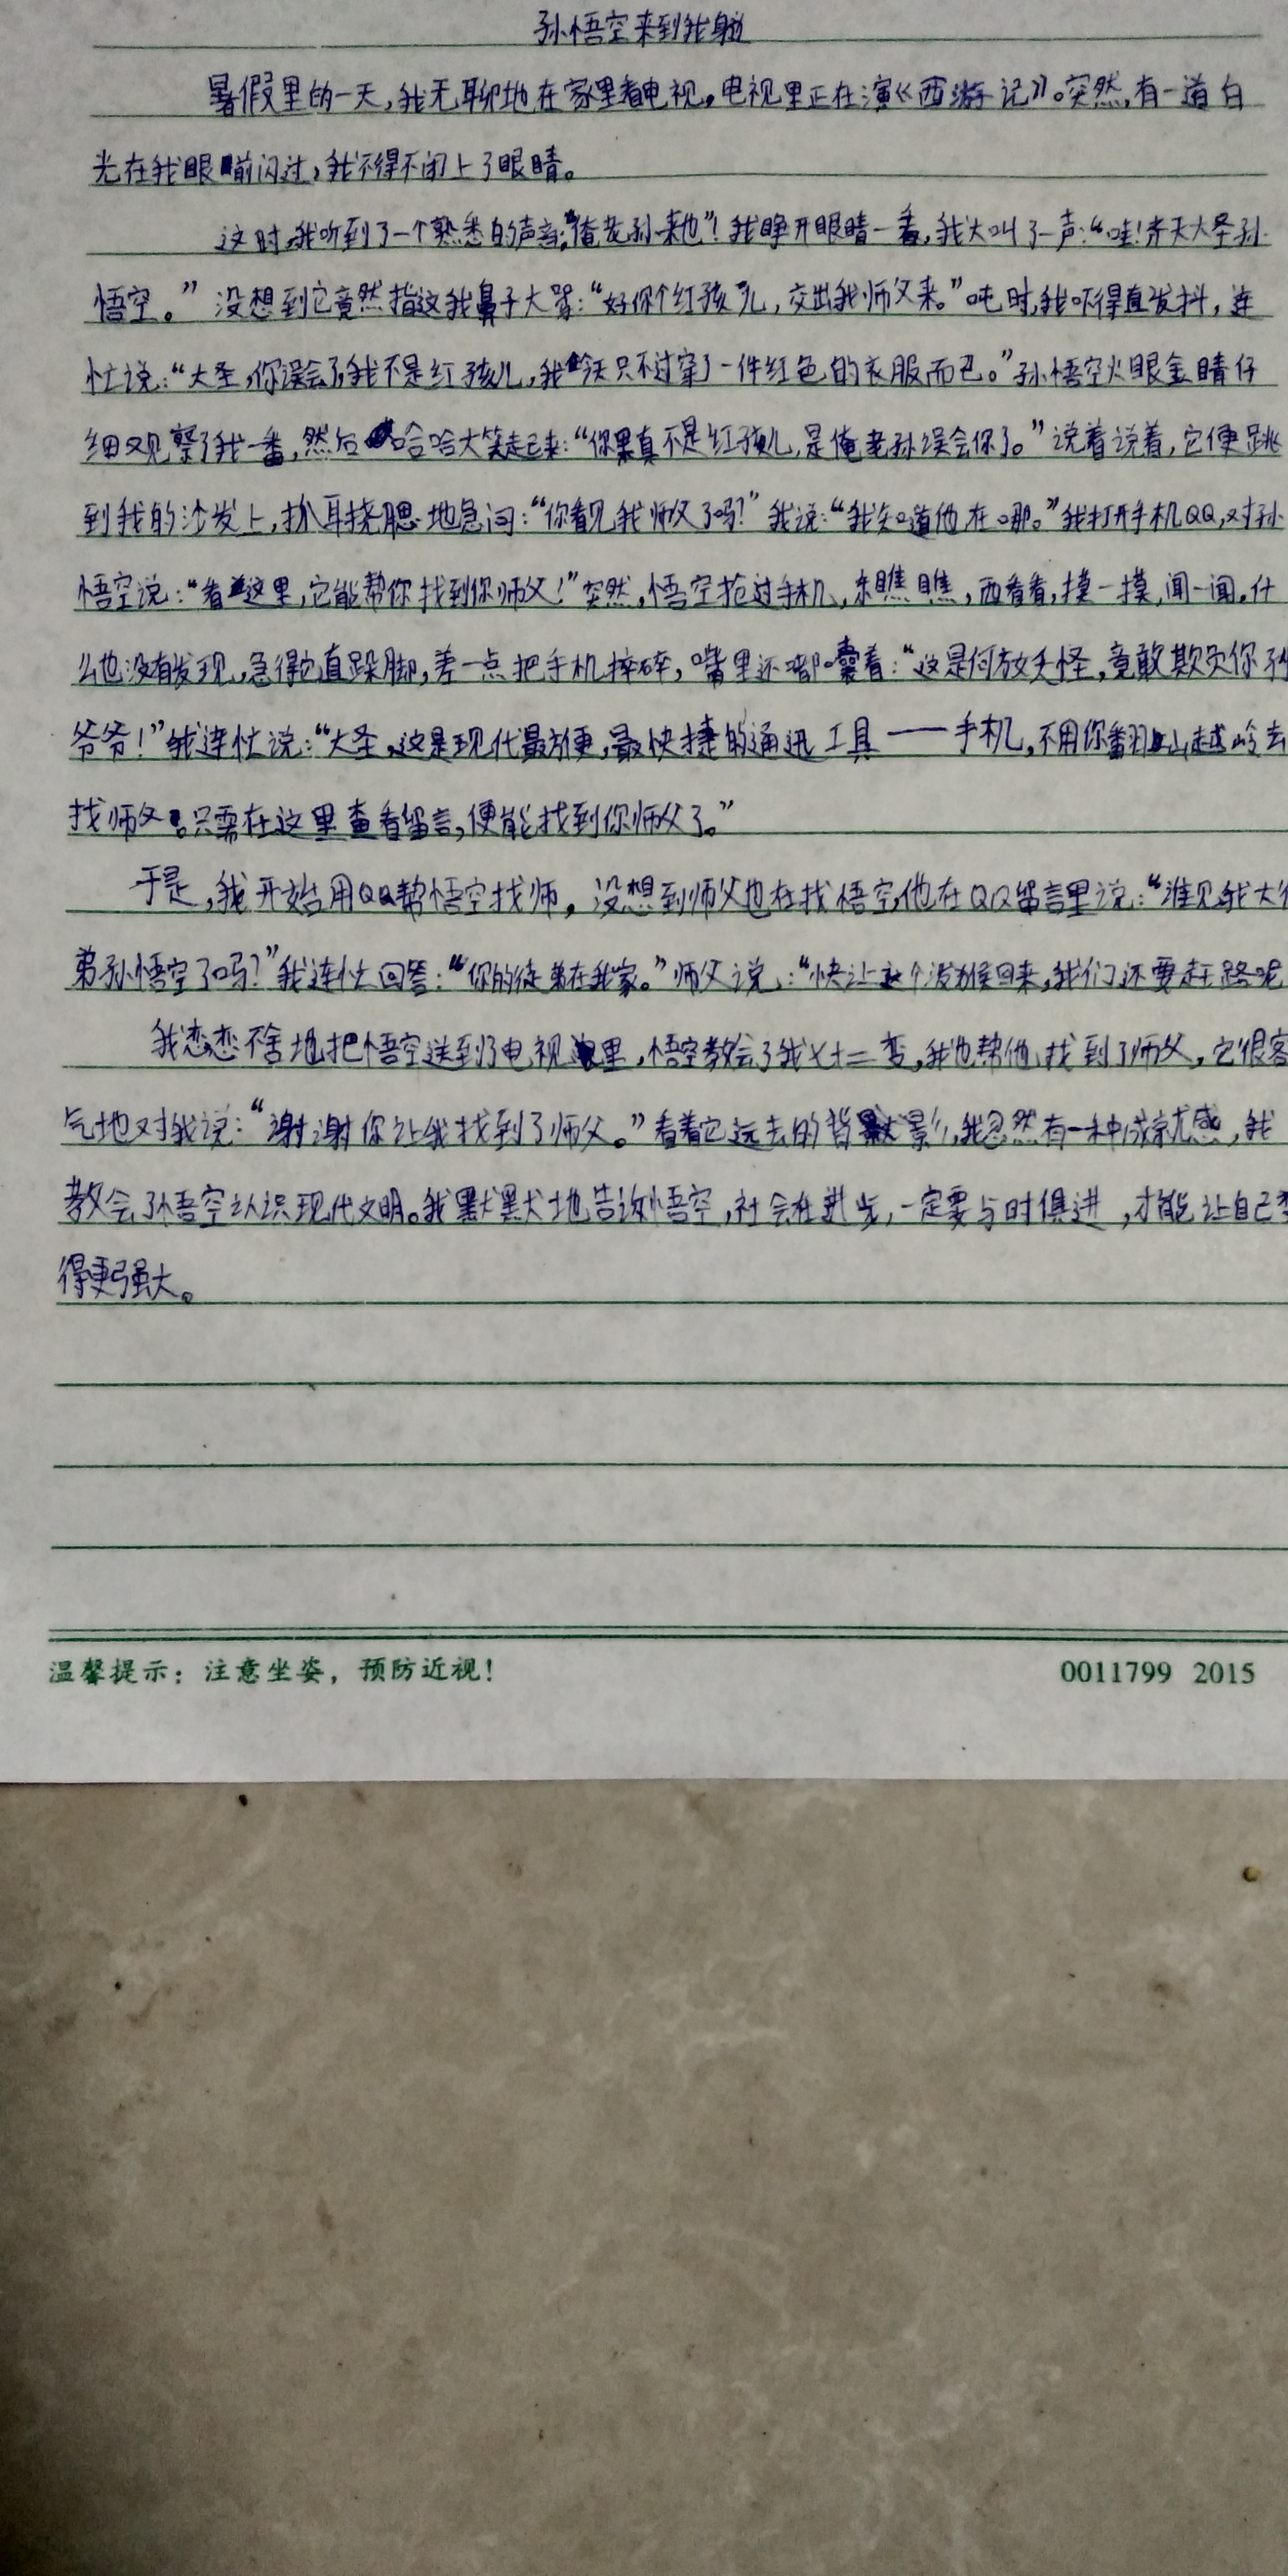 孙悟空来到我身边
暑假里的一天,我无聊地在家里看电视。电视里正在演《西游记》。突然,有一道白
光在我眼前闪过,我不得不闭上了眼睛。
这时,我听到了一个熟悉的声音:“俺老孙来也”!我睁开眼睛一看,我大叫了一声:“哇!齐天大圣孙
悟空。”没想到它竟然指这我鼻子大骂:“好你个红孩儿,交出我师父来。”吨时,我吓得直发抖,连
忙说:“大圣,你误会了,我不是红孩儿,我今天只不过穿了一件红色的衣服而已。”孙悟空火眼金睛仔
细观察了我一番,然后哈哈大笑起来:“你果真不是红孩儿,是俺老孙误会你了。”说着说着,它便跳
到我的沙发上,抓耳挠腮地急问:“你看见我师父了吗?”我说:“我知道他在哪。”我打开手机QQ,对孙
悟空说:“看这里,它能帮你找到你师父!”突然,悟空抢过手机,东瞧瞧,西看看,摸一摸,闻一闻,什
么也没有发现,急得它直跺脚,差一点把手机摔碎,嘴里还嘟囔着:“这是何方妖怪,竟敢欺负你孙
爷爷!”我连忙说:“大圣,这是现代最方便,最快捷的通讯工具——手机,不用你翻山越岭去
找师父,只需在这里查看留言,便能找到你师父了。”
于是,我开始用QQ帮悟空找师,没想到师父也在找悟空,他在QQ留言里说:“谁见我大徒
弟孙悟空了吗?”我连忙回答:“你的徒弟在我家。”师父说:“快让这个泼猴回来,我们还要赶路呢
我恋恋不舍地把悟空送到了电视里,悟空教会了我七十二变,我也帮他找到了师父,它很客
气地对我说:“谢谢你让我找到了师父。”看着它远去的背影,我忽然有一种成就感,我
教会孙悟空认识现代文明。我默默地告诉悟空,社会在进步,一定要与时俱进,才能让自己变
得更强大。
温馨提示:注意坐姿,预防近视!
0011799 2015